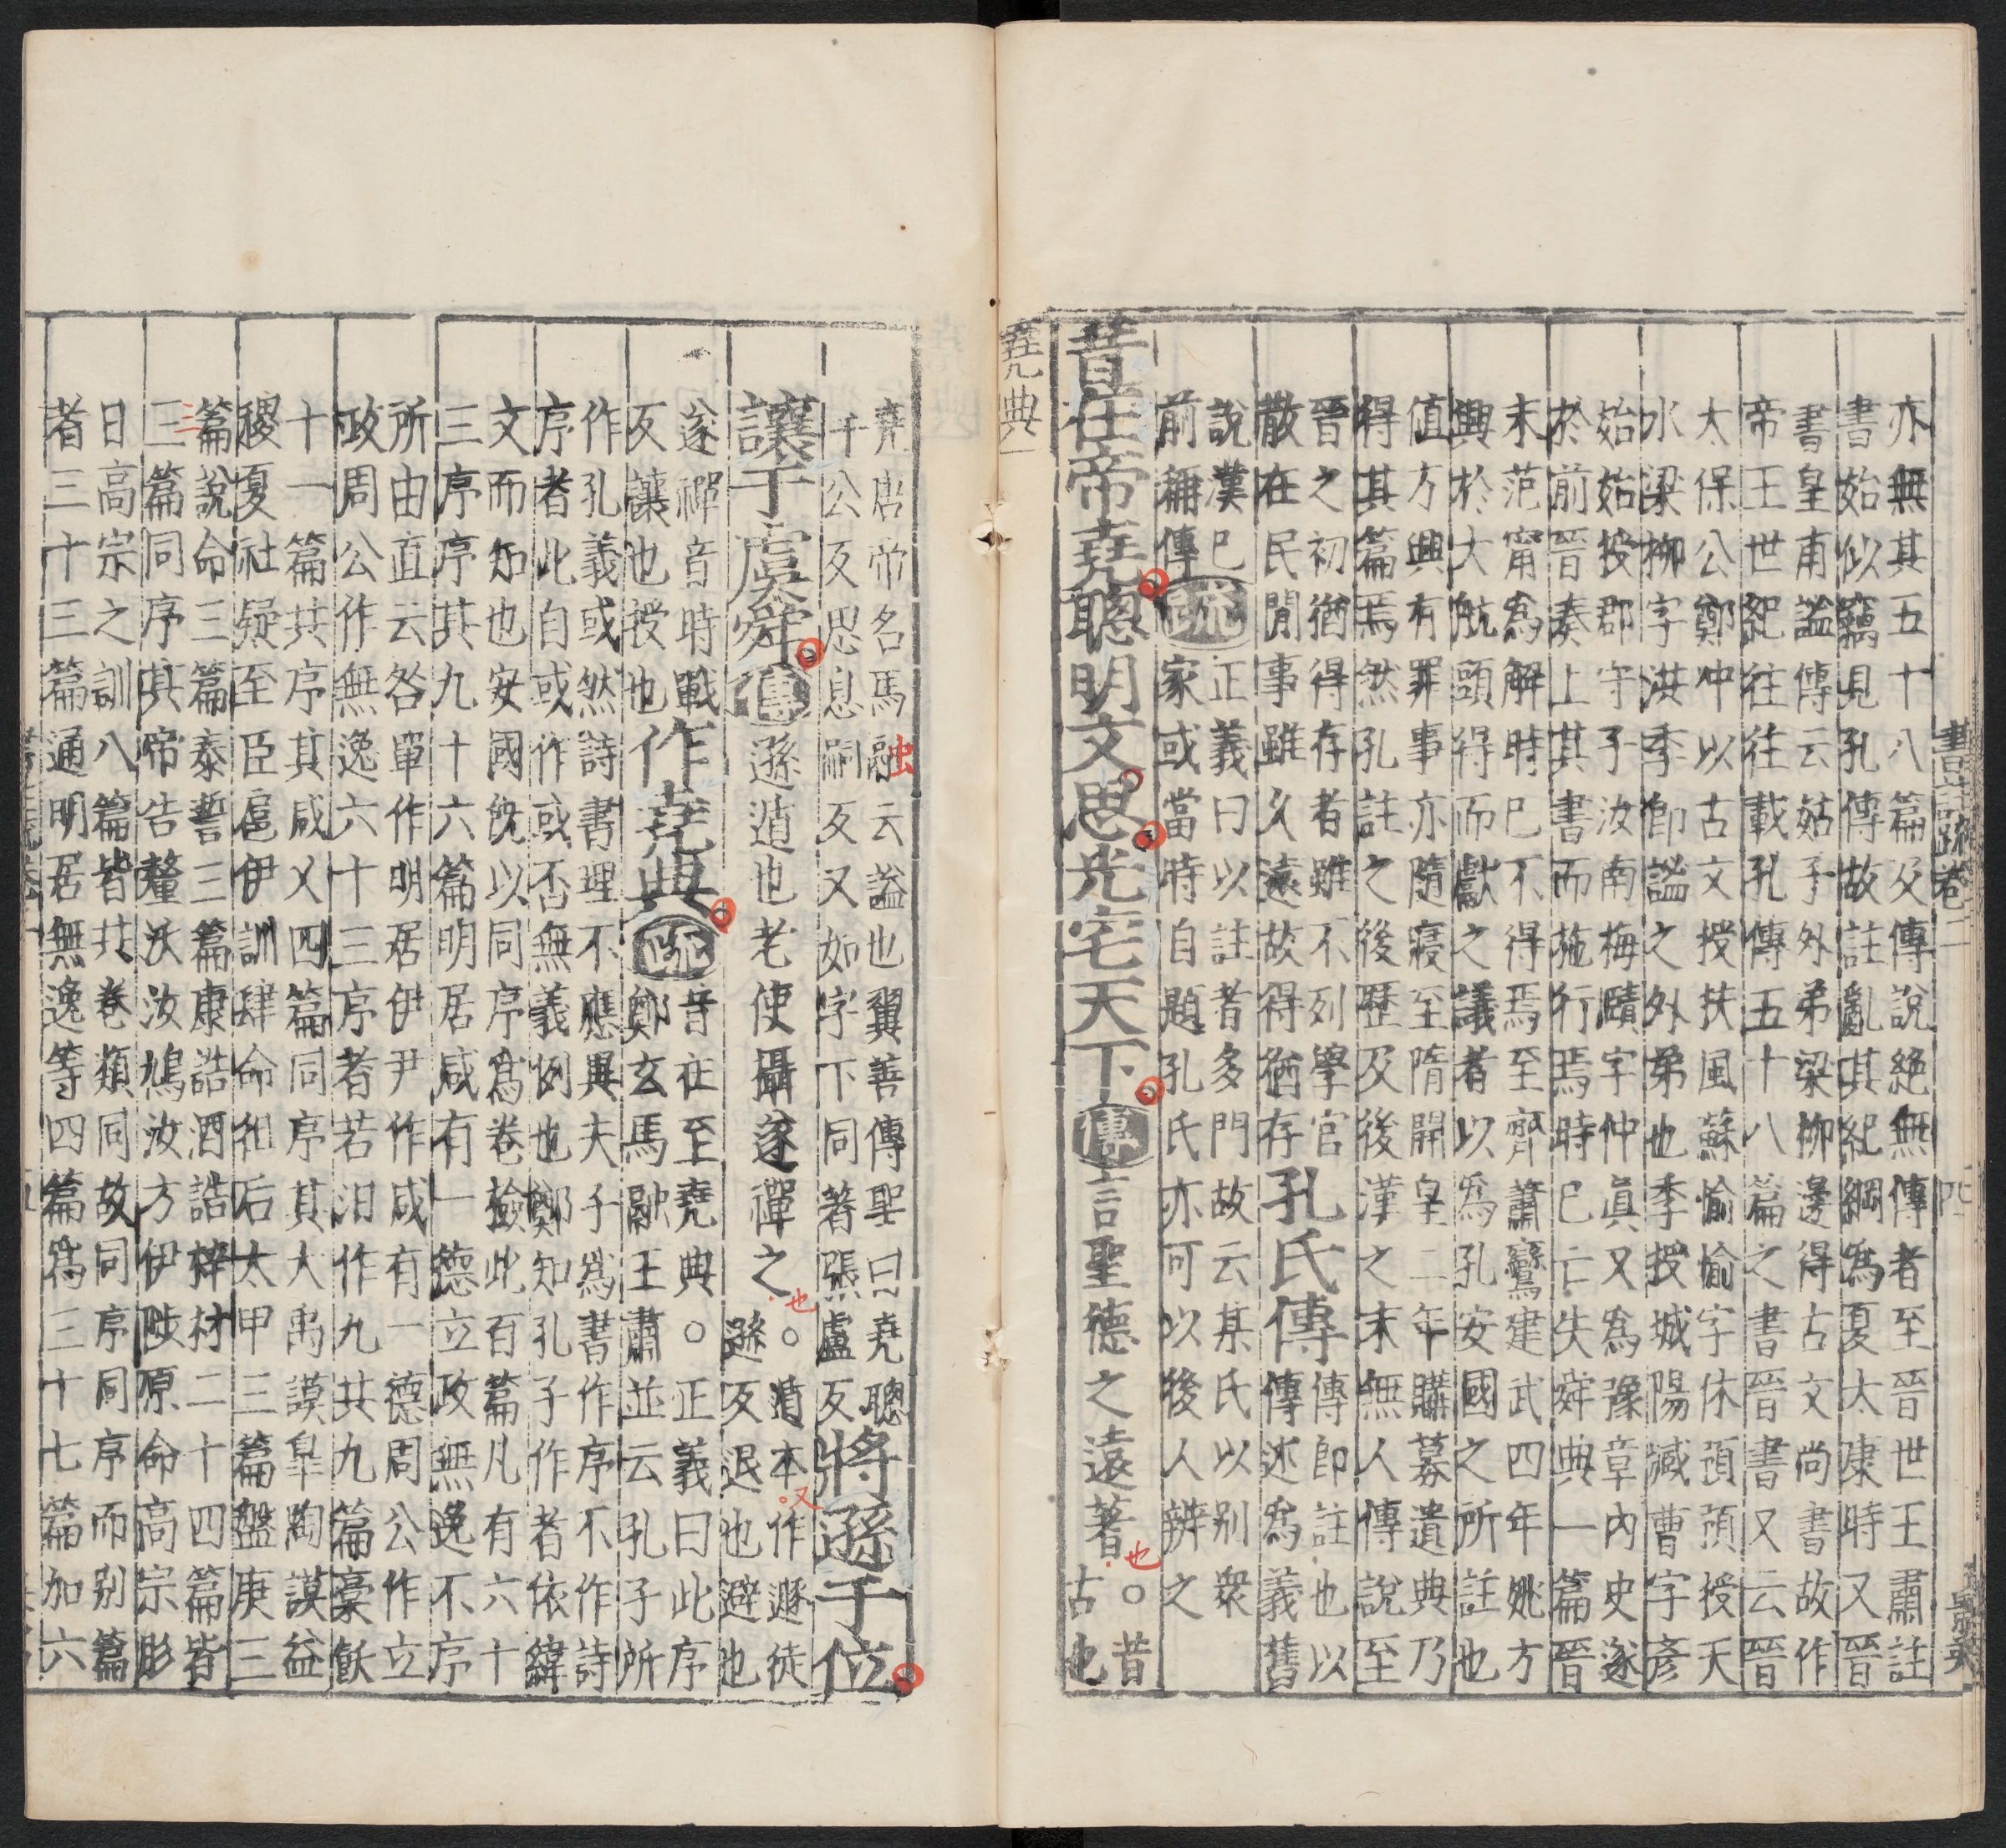 書註疏卷二
四
亦無其五十八篇及傳說絶無傳者至晉世王肅註
書始似竊見孔傳故註亂其紀綱爲夏太康時又晉
書皇甫謐傳云姑子外弟梁柳邊得古文尚書故作
帝王世紀往往載孔傳五十八篇之書晉書又云晉
太保公鄭冲以古文授扶風蘇愉愉字休預預授天
水梁柳字洪季即謐之外弟也季授城陽臧曹字彥
始始授郡守子汝南梅賾字仲真又爲豫章內史遂
於前晉奏上其書而施行焉時巳亡失舜典一篇晉
末范甯爲解時巳不得焉至齊蕭鸞建武四年姚方
興於大航頭得而獻之議者以爲孔安國之所註也
值方興有罪事亦隨寢至隋開皇二年購募遺典乃
得其篇焉然孔註之後歷及後漢之末無人傳說至
晉之初猶得存者雖不列學官
散在民間事雖久遠故得猶存
孔氏傳
傳即註也以
傳述爲義舊
說漢巳
前稱傳
疏
正義曰以註者多門故云某氏以別衆
家或當時自題孔氏亦可以後人辨之
昔在帝堯聰明文思光宅天下傳言聖德之遠著也。昔
古也
堯典一
堯唐帝名馬融云謚也翼善傳聖曰堯聰
千公反思息嗣反又如字下同著張慮反
將遜于位
讓于虞舜傳遜遁也老使攝遂禪之也。遁本又作遯徒
遜反退也避也
遂禪音時戰
反讓也授也
作堯典疏
昔在至堯典。正義曰此序
鄭玄馬融王肅並云孔子所
作孔義或然詩書理不應異夫子爲書作序不作詩
序者此自或作或否無義例也鄭知孔子作者依緯
文而知也安國旣以同序爲卷撿此百篇凡有六十
三序序其九十六篇明居咸有一德立政無逸不序
所由直云咎單作明居伊尹作咸有一德周公作立
政周公作無逸六十三序者若汨作九共九篇槀飫
十一篇共序其咸乂四篇同序其大禹謨臯陶謨益
稷夏社疑至臣扈伊訓肆命徂后太甲三篇盤庚三
篇說命三篇泰誓三篇康誥酒誥梓材二十四篇皆
三篇同序其帝告釐沃汝鳩汝方伊陟原命高宗肜
日高宗之訓八篇皆共卷類同故同序同序而別篇
者三十三篇通明居無逸等四篇爲三十七篇加六